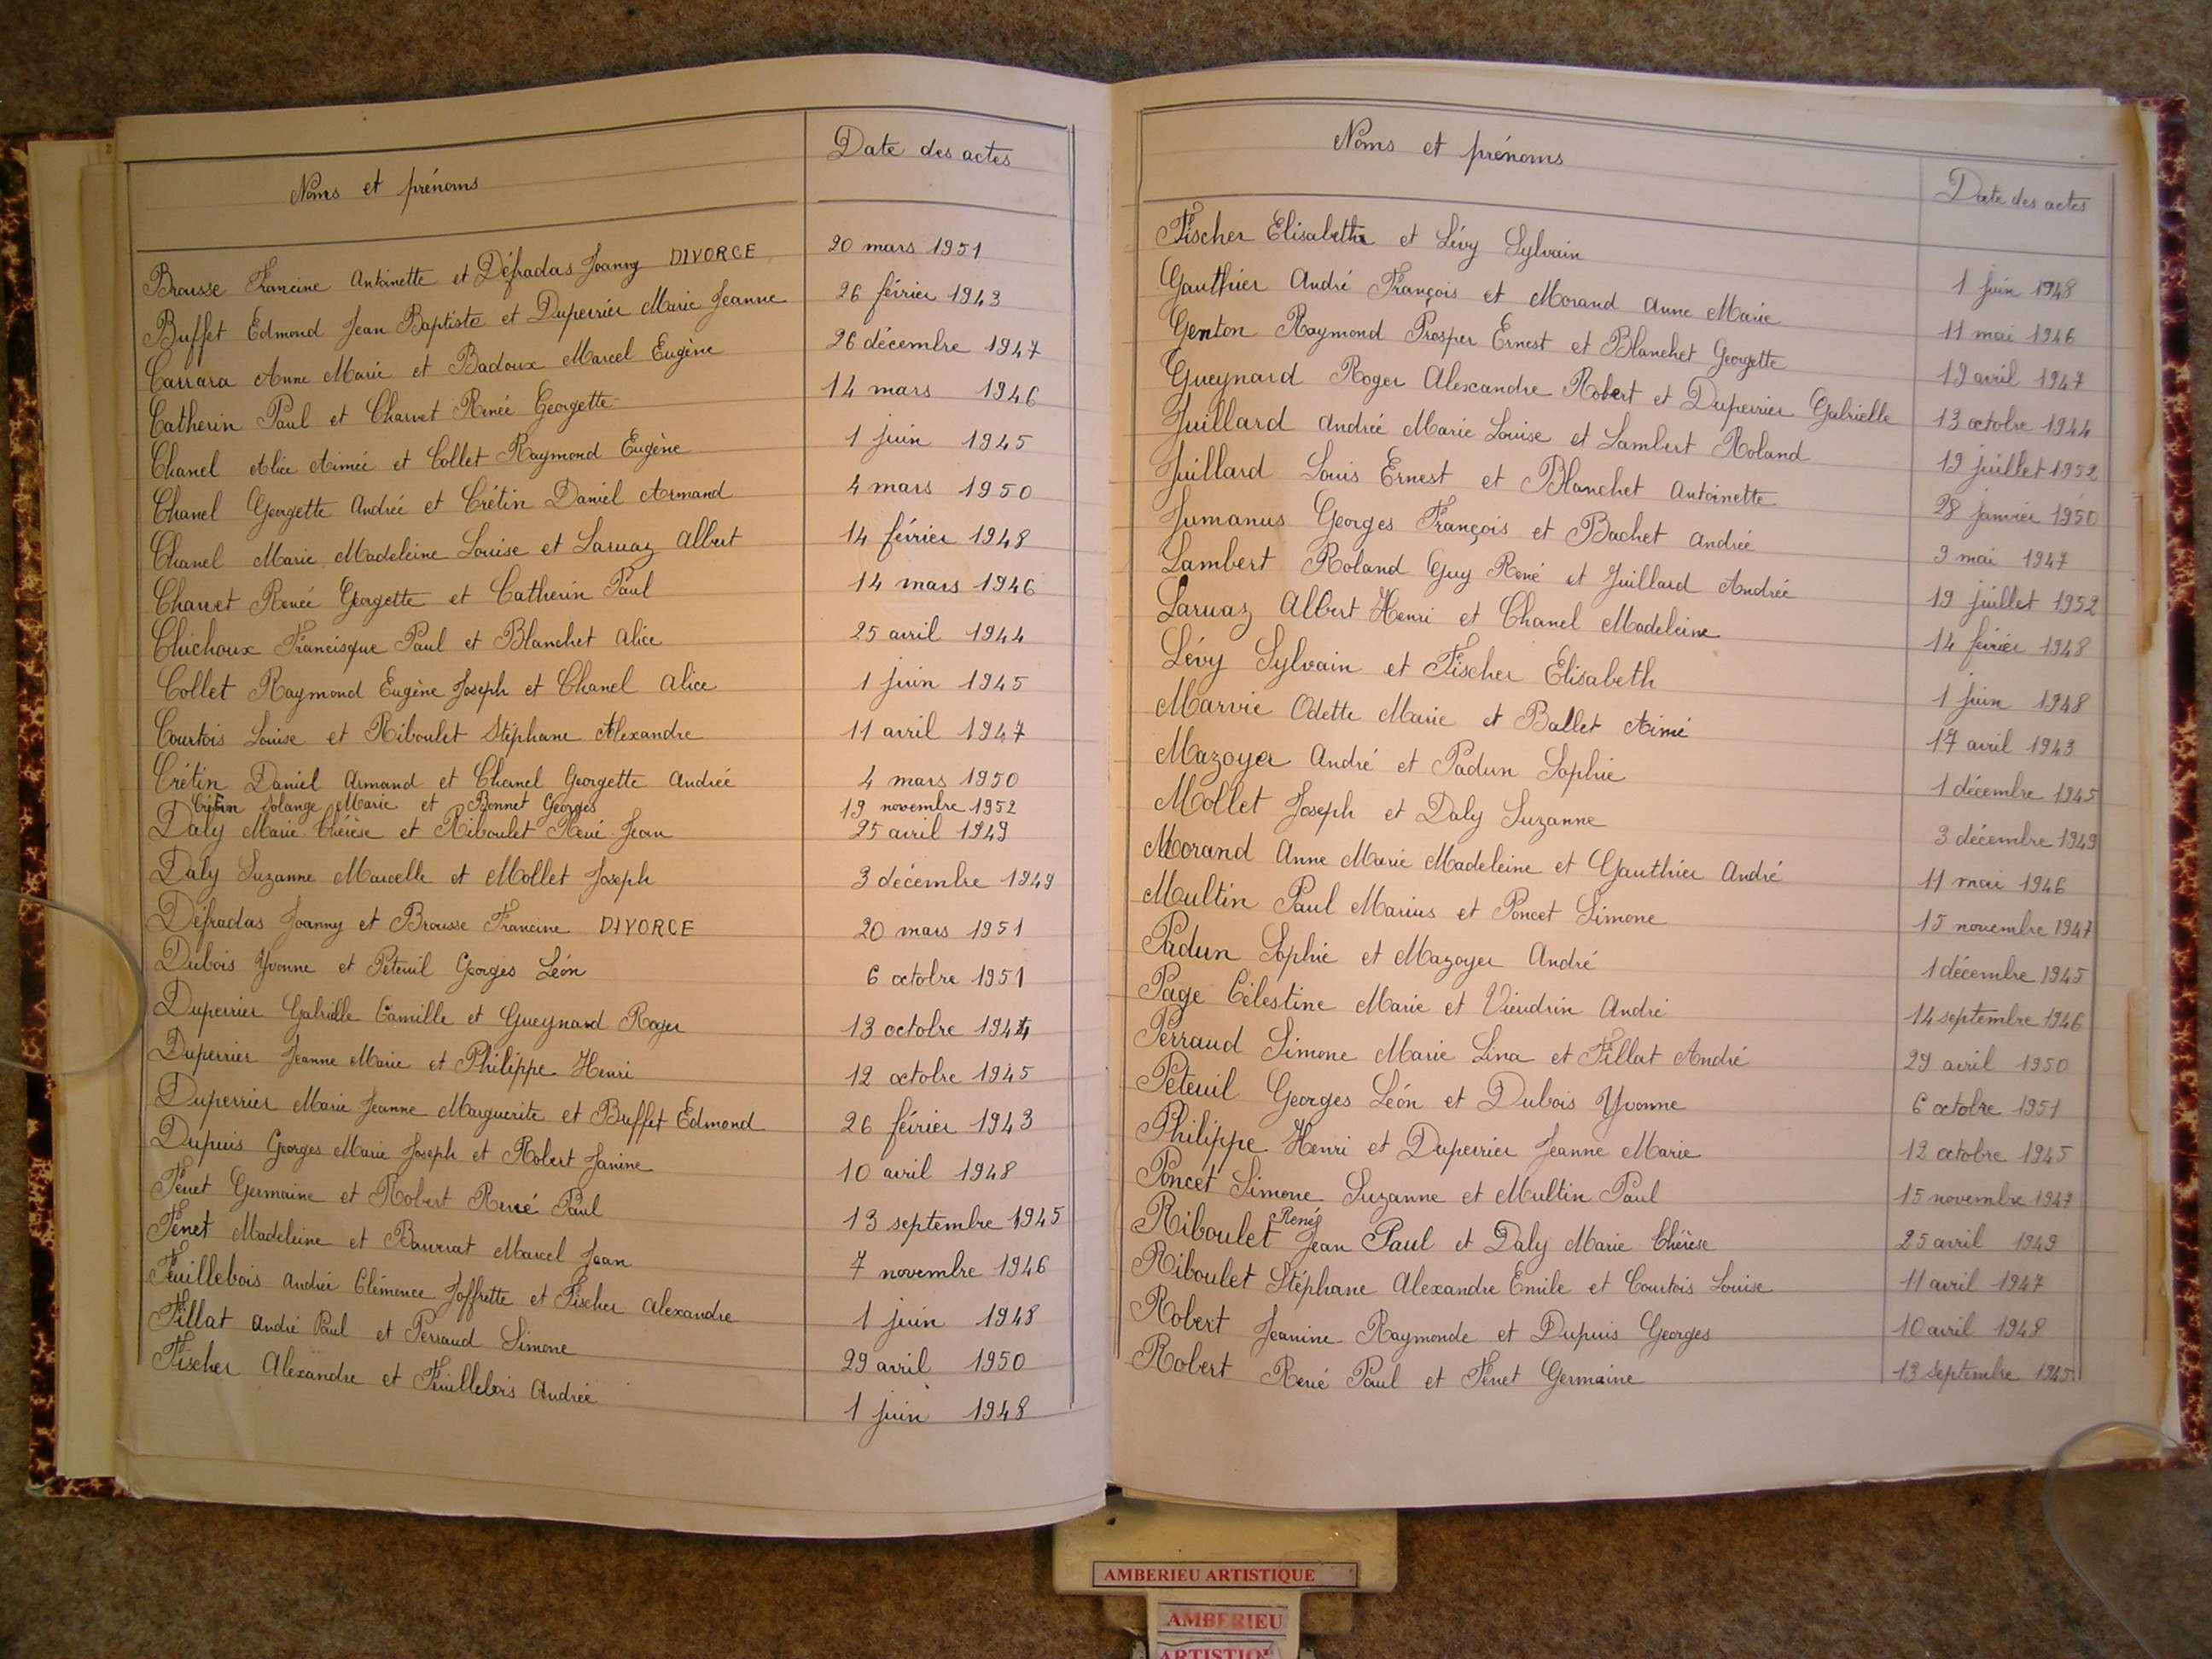 Noms et prénoms
Date des actes
Brousse Francine Antoinette et Défradas Joanny DIVORCE 20 mars 1951
Buffet Edmond Jean Baptiste et Duperrier Marie Jeanne 26 février 1943
Carrara Anne Marie et Badoux Marcel Eugène 26 décembre 1947
Catherin Paul et Charvet Renée Georgette 14 mars 1946
Chanel Alice Aimée et Collet Raymond Eugène 1 juin 1945
Chanel Georgette Andrée et Crétin Daniel Armand 4 mars 1950
Chanel Marie Madeleine Louise et Laruaz Albert 14 février 1948
Charvet Renée Georgette et Catherin Paul 14 mars 1946
Chichoux Francisque Paul et Blanchet Alice 25 avril 1944
Collet Raymond Eugène Joseph et Chanel Alice 1 juin 1945
Courtois Louise et Riboulet Stéphane Alexandre 11 avril 1947
Crétin Daniel Armand et Chanel Georgette Andrée 4 mars 1950
Crétin Solange Marie et Bonnet Georges 19 novembre 1952
Daly Marie Thérèse et Riboulet René Jean 25 avril 1949
Daly Suzanne Marcelle et Mollet Joseph 3 décembre 1949
Défradas Joanny et Brousse Francine DIVORCE 20 mars 1951
Dubois Yvonne et Péteuil Georges Léon 6 octobre 1951
Duperrier Gabrielle Camille et Gueynard Roger 13 octobre 1944
Duperrier Jeanne Marie et Philippe Henri 12 octobre 1945
Duperrier Marie Jeanne Marguerite et Buffet Edmond 26 février 1943
Dupuis Georges Marie Joseph et Robert Janine 10 avril 1948
Fenet Germaine et Robert René Paul 13 septembre 1945
Fenet Madeleine et Marcel Jean 7 novembre 1946
Feuillebois Andrée Clémence Joffrette et Fischer Alexandre 1 juin 1948
Fillat André Paul et Perraud Simone 29 avril 1950
Fischer Alexandre et Feuillebois Andrée 1 juin 1948
Noms et prénoms
Date des actes
Fischer Elisabeth et Lévy Sylvain 1 juin 1948
Gauthier André François et Morand Anne Marie 11 mai 1946
Genton Raymond Prosper Ernest et Blanchet Georgette 19 avril 1947
Gueynard Roger Alexandre Robert et Duperrier Gabrielle 13 octobre 1944
Juillard Andrée Marie Louise et Lambert Roland 19 juillet 1952
Juillard Louis Ernest et Blanchet Antoinette 28 janvier 1950
Jumanus Georges François et Bachet Andrée 9 mai 1947
Lambert Roland Guy René et Juillard Andrée 19 juillet 1952
Laruaz Albert Henri et Chanel Madeleine 14 février 1948
Lévy Sylvain et Fischer Elisabeth 1 juin 1948
Marvie Odette Marie et Ballet Aimé 17 avril 1943
Mazoyer André et Padun Sophie 1 décembre 1945
Mollet Joseph et Daly Suzanne 3 décembre 1949
Morand Anne Marie Madeleine et Gauthier André 11 mai 1946
Multin Paul Marius et Poncet Simone 15 novembre 1947
Padun Sophie et Mazoyer André 1 décembre 1945
Page Célestine Marie et Vieudrin André 14 septembre 1946
Perraud Simone Marie Lina et Fillat André 29 avril 1950
Péteuil Georges Léon et Dubois Yvonne 6 octobre 1951
Philippe Henri et Duperrier Jeanne Marie 12 octobre 1945
Poncet Simone Suzanne et Multin Paul 15 novembre 1947
Riboulet René Jean Paul et Daly Marie Thérèse 25 avril 1949
Riboulet Stéphane Alexandre Emile et Courtois Louise 11 avril 1947
Robert Jeanine Raymonde et Dupuis Georges 10 avril 1948
Robert René Paul et Fenet Germaine 13 septembre 1945
AMBERIEU ARTISTIQUE
AMBERIEU